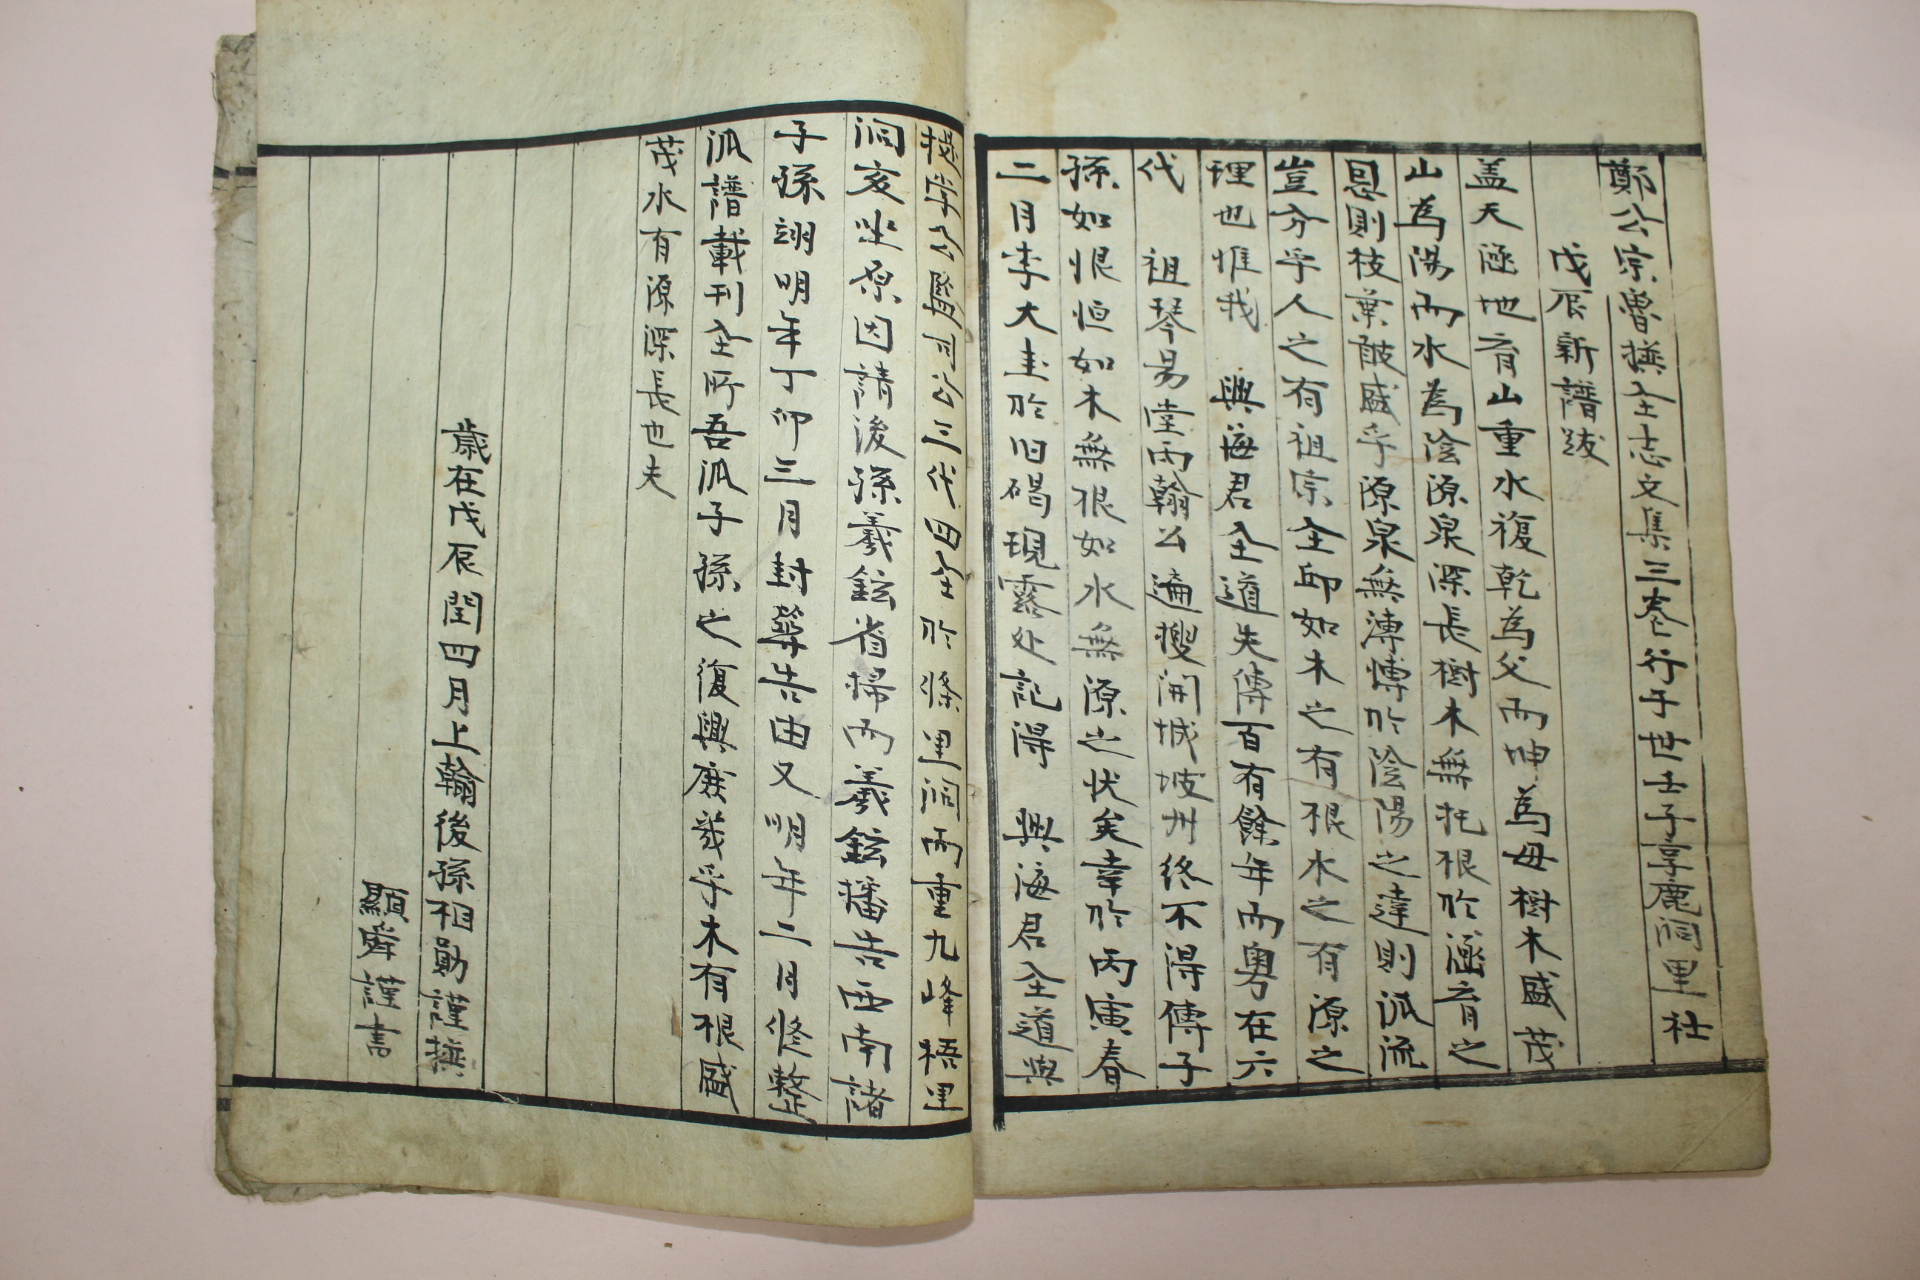 鄭公宗魯撰全志文集三卷行于世壬子享鹿洞里社
戊辰新譜跋
盖天涵地育山重水復乾為父而坤為母樹木盛茂
山為陽而水為陰源泉深長樹木無托根於涵育之
恩則枝葉敲盛乎源泉無溥博於陰陽之達則派流
豈夯乎人之有祖宗全邱如木之有根水之有源之
理也惟我 興海君全道失傳百有餘年而粤在六
代 祖琴易堂丙翰公遍搜開城坡州終不得傳子
孫如恨恒如木無根如水無源之状矣幸於丙寅春
二月李大圭於旧碣現露处記得 興海君全道與
公監司公三代四全於條里洞而重九峰梧里
洞亥坐原因請後孫羲鉉省掃而羲鉉播告西南諸
子孫翊明年丁卯三月封塋告由又明年二月修整
派譜載刊全所吾派子孫之復興庶幾乎木有根盛
茂水有源深長也夫
歲在戊辰閏四月上翰後孫相勛謹撰
顯舜謹書